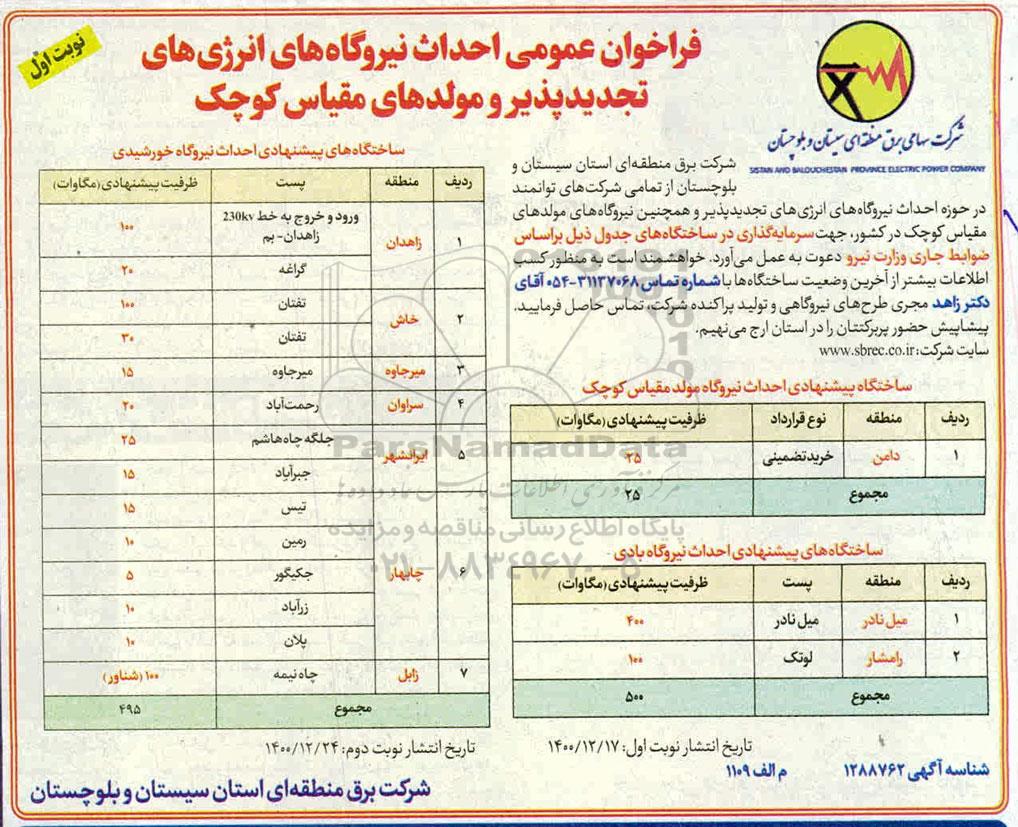 نوبت اول
فراخوان عمومی احداث نیروگاه‌های انرژی‌های
تجدیدپذیر و مولدهای مقیاس کوچک
شرکت سهامی برق منطقه‌ای سیستان و بلوچستان
SISTAN AND BALOUCHESTAN PROVINCE ELECTRIC POWER COMPANY
شرکت برق منطقه‌ای استان سیستان و
بلوچستان از تمامی شرکت‌های توانمند
در حوزه احداث نیروگاه‌های انرژی‌های تجدیدپذیر و همچنین نیروگاه‌های مولدهای
مقیاس کوچک در کشور، جهت سرمایه‌گذاری در ساختگاه‌های جدول ذیل براساس
ضوابط جاری وزارت نیرو دعوت به عمل می‌آورد. خواهشمند است به منظور کسب
اطلاعات بیشتر از آخرین وضعیت ساختگاه‌ها با شماره تماس ۳۱۱۳۷۰۶۸-۰۵۴ آقای
دکتر زاهد مجری طرح‌های نیروگاهی و تولید پراکنده شرکت، تماس حاصل فرمایید.
پیشاپیش حضور پربرکتتان را در استان ارج می‌نهیم.
سایت شرکت: www.sbrec.co.ir
ساختگاه پیشنهادی احداث نیروگاه مولد مقیاس کوچک
ردیف منطقه نوع قرارداد ظرفیت پیشنهادی (مگاوات)
۱ دامن خرید تضمینی ۲۵
مجموع ۲۵
ساختگاه‌های پیشنهادی احداث نیروگاه بادی
ردیف منطقه پست ظرفیت پیشنهادی (مگاوات)
۱ میل نادر میل نادر ۴۰۰
۲ رامشار لوتک ۱۰۰
مجموع ۵۰۰
ساختگاه‌های پیشنهادی احداث نیروگاه خورشیدی
ردیف منطقه پست ظرفیت پیشنهادی (مگاوات)
۱ زاهدان ورود و خروج به خط 230kv ۱۰۰
زاهدان - بم
گراغه ۲۰
۲ خاش تفتان ۱۰۰
تفتان ۳۰
۳ میرجاوه میرجاوه ۱۵
۴ سراوان رحمت‌آباد ۲۰
۵ ایرانشهر جلگه چاه هاشم ۲۵
جبرآباد ۱۵
۶ چابهار تیس ۱۵
رمین ۱۰
جکیگور ۵
زرآباد ۱۰
پلان ۱۰
۷ زابل چاه نیمه ۱۰۰ (شناور)
مجموع ۴۹۵
ParsNamadData
مرکز فرآوری اطلاعات پارس نماد داده‌ها
پایگاه اطلاع رسانی مناقصه و مزایده
۰۲۱-۸۸۳۴۹۶۷۰-۵
تاریخ انتشار نوبت اول: ۱۴۰۰/۱۲/۱۷
تاریخ انتشار نوبت دوم: ۱۴۰۰/۱۲/۲۴
شناسه آگهی ۱۲۸۸۷۶۲
م الف ۱۱۰۹
شرکت برق منطقه‌ای استان سیستان و بلوچستان